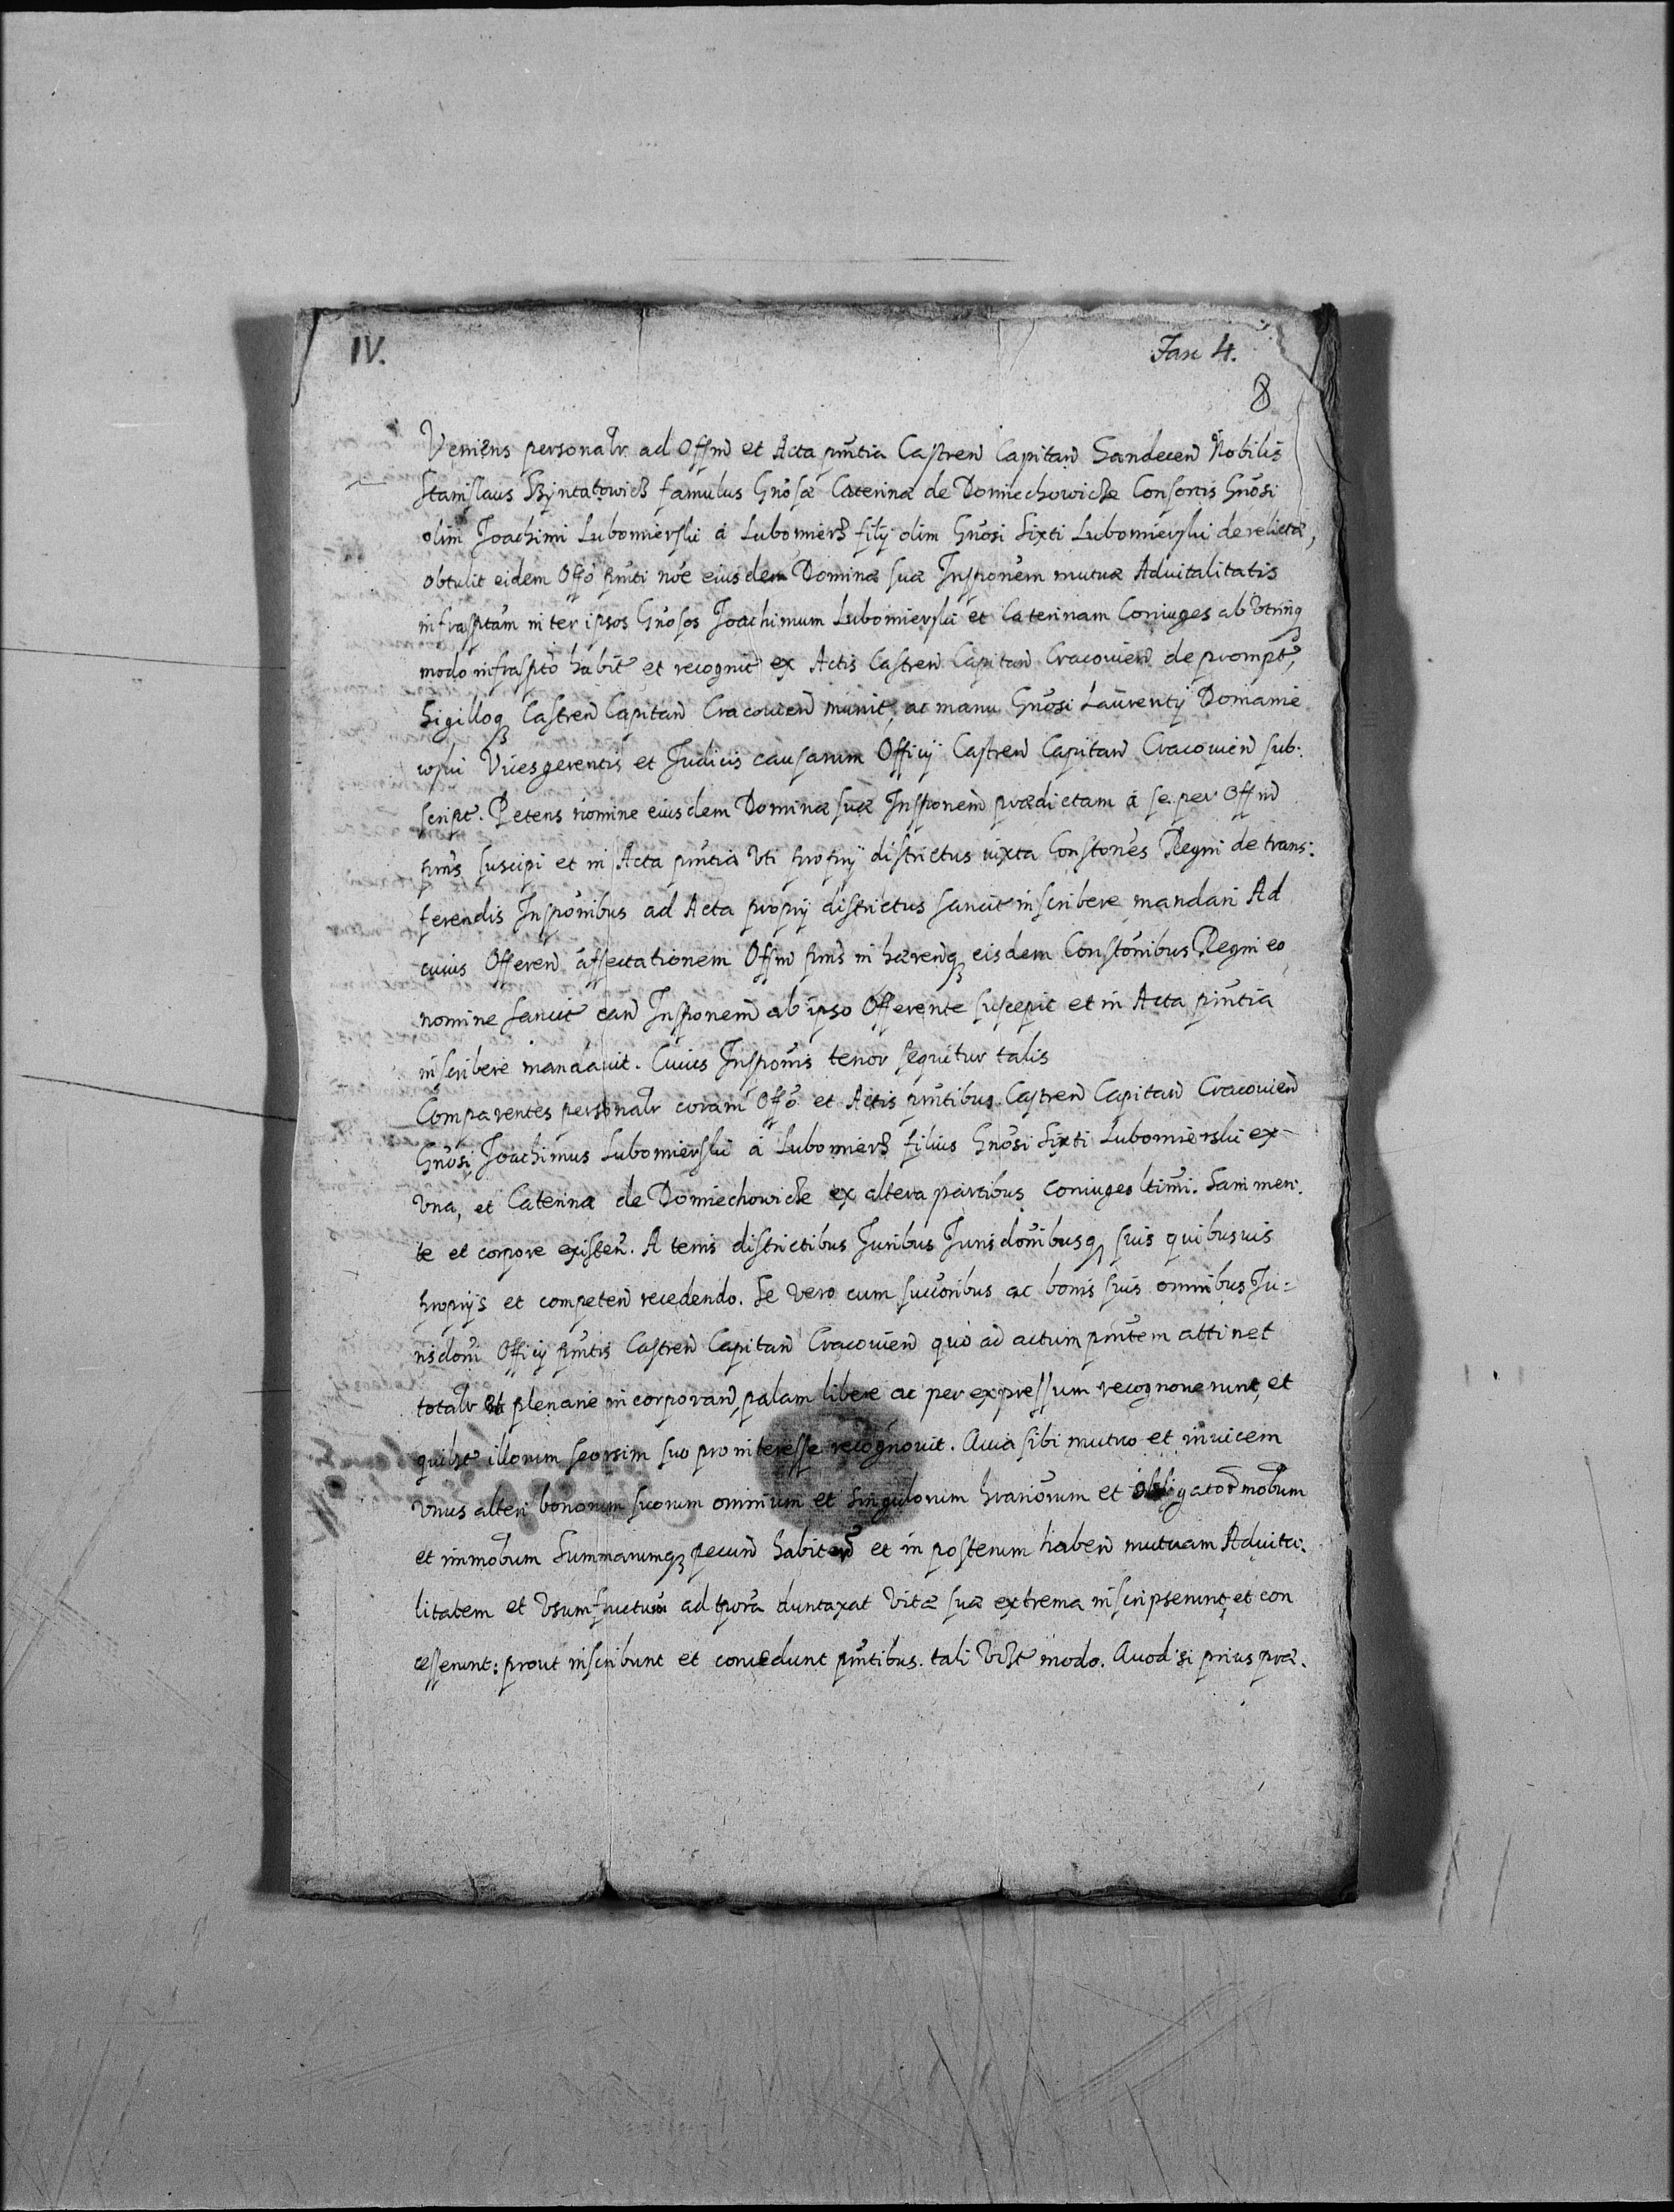 IV.
Fasc 4.
8
Veniens personalr ad Offm et Acta pñtia Castren Capitan Sandecen Nobilis
Stanislaus famulus Gnosæ Caterinæ de Domiechowicze Consortis Gnosi
olim Joachimi Lubomierski á Lubomierz filij olim Gnosi Sixti Lubomierski derelictæ,
obtulit eidem Offo pñti noe eiusdem Dominæ suæ Insponem mutuæ Aduitalitatis
infrasptam inter ipsos Gnosos Joachimum Lubomierski et Caterinam Coniuges ab vtrinq
modo infraspto habit et recognit ex Actis Castren Capitan Cracouien de prompt,
Sigilloq Castren Capitan Cracouien munit, ac manu Gnosi Laurentij Domanie
wski Vicesgerentis et Judicis causarum Officij Castren Capitan Cracouien sub:
script. Petens nomine eiusdem Dominæ suæ Insponem prædictam á se per Offm
pñs suscipi et in Acta pñtia vti proprij districtus iuxta Constones Regni de trans:
ferendis Insponibus ad Acta proprij districtus sancit inscribere mandari Ad
cuius Offeren affectationem Offm pñs inhærenq eisdem Constonibus Regni eo
nomine sancit ean Insponem ab ipso Offerente suscepit et in Acta pñtia
inscribere mandauit. Cuius Insponis tenor sequitur talis
Comparentes personalr coram Offo et Actis pñtibus Castren Capitan Cracouien
Gnosi Joachimus Lubomierski á Lubomierz filius Gnosi Sixti Lubomierski ex
vna, et Caterina de Domiechowicze ex altera partibus coniuges ltimi. Sani men
te et corpore existen. A terris districtibus Juribus Jurisdonibusq suis quibusuis
proprijs et competen recedendo. Se vero cum succoribus ac bonis suis omnibus Ju=
risdoni Officij pñtis Castren Capitan Cracouien quo ad actum pñtem attinet
totalr et plenarie incorporan, palam libere ac per expressum recognouerunt, et
quilbt illorum seorsim suo pro interesse recognouit. Quia sibi mutuo et inuicem
vnus alteri bonorum suorum omnium et singulorum hrariorum et obligator mobum
et immobum Summarumq pecun habitar et in posterum haben mutuam Aduita:
litatem et vsumfructum ad tpora duntaxat vitæ suæ extrema inscripserunt, et con
cesserunt: prout inscribunt et concedunt pñtibus. tali vidlt modo. Quod si prius præ.